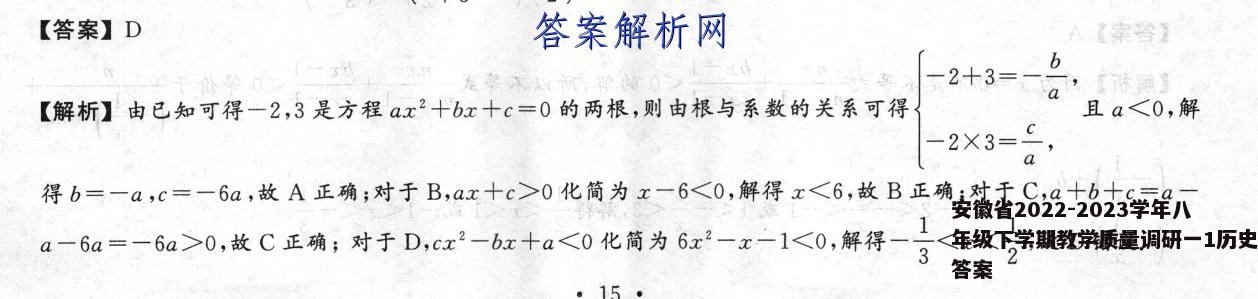 【答案】D
答案解析网
【解析】由已知可得-2,3是方程ax²+bx+c=0的两根,则由根与系数的关系可得{-2+3=-b/a, -2×3=c/a, 且a<0,解
得b=-a,c=-6a,故A正确;对于B,ax+c>0化简为x-6<0,解得x<6,故B正确;对于C,a+b+c=a-
a-6a=-6a>0,故C正确;对于D,cx²-bx+a<0化简为6x²-x-1<0,解得-1/3<
安徽省2022-2023学年八
年级下学期教学质量调研一1历史
答案
· 15 ·